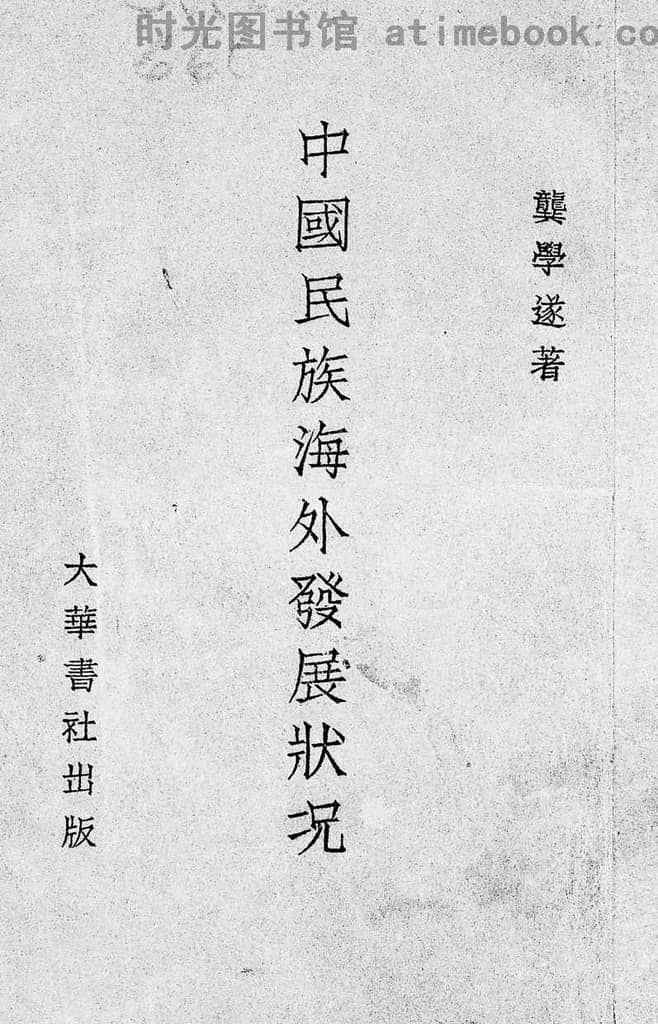 时光图书馆 atimebook.co
龔學遂著
中國民族海外發展狀况
大華書社出版